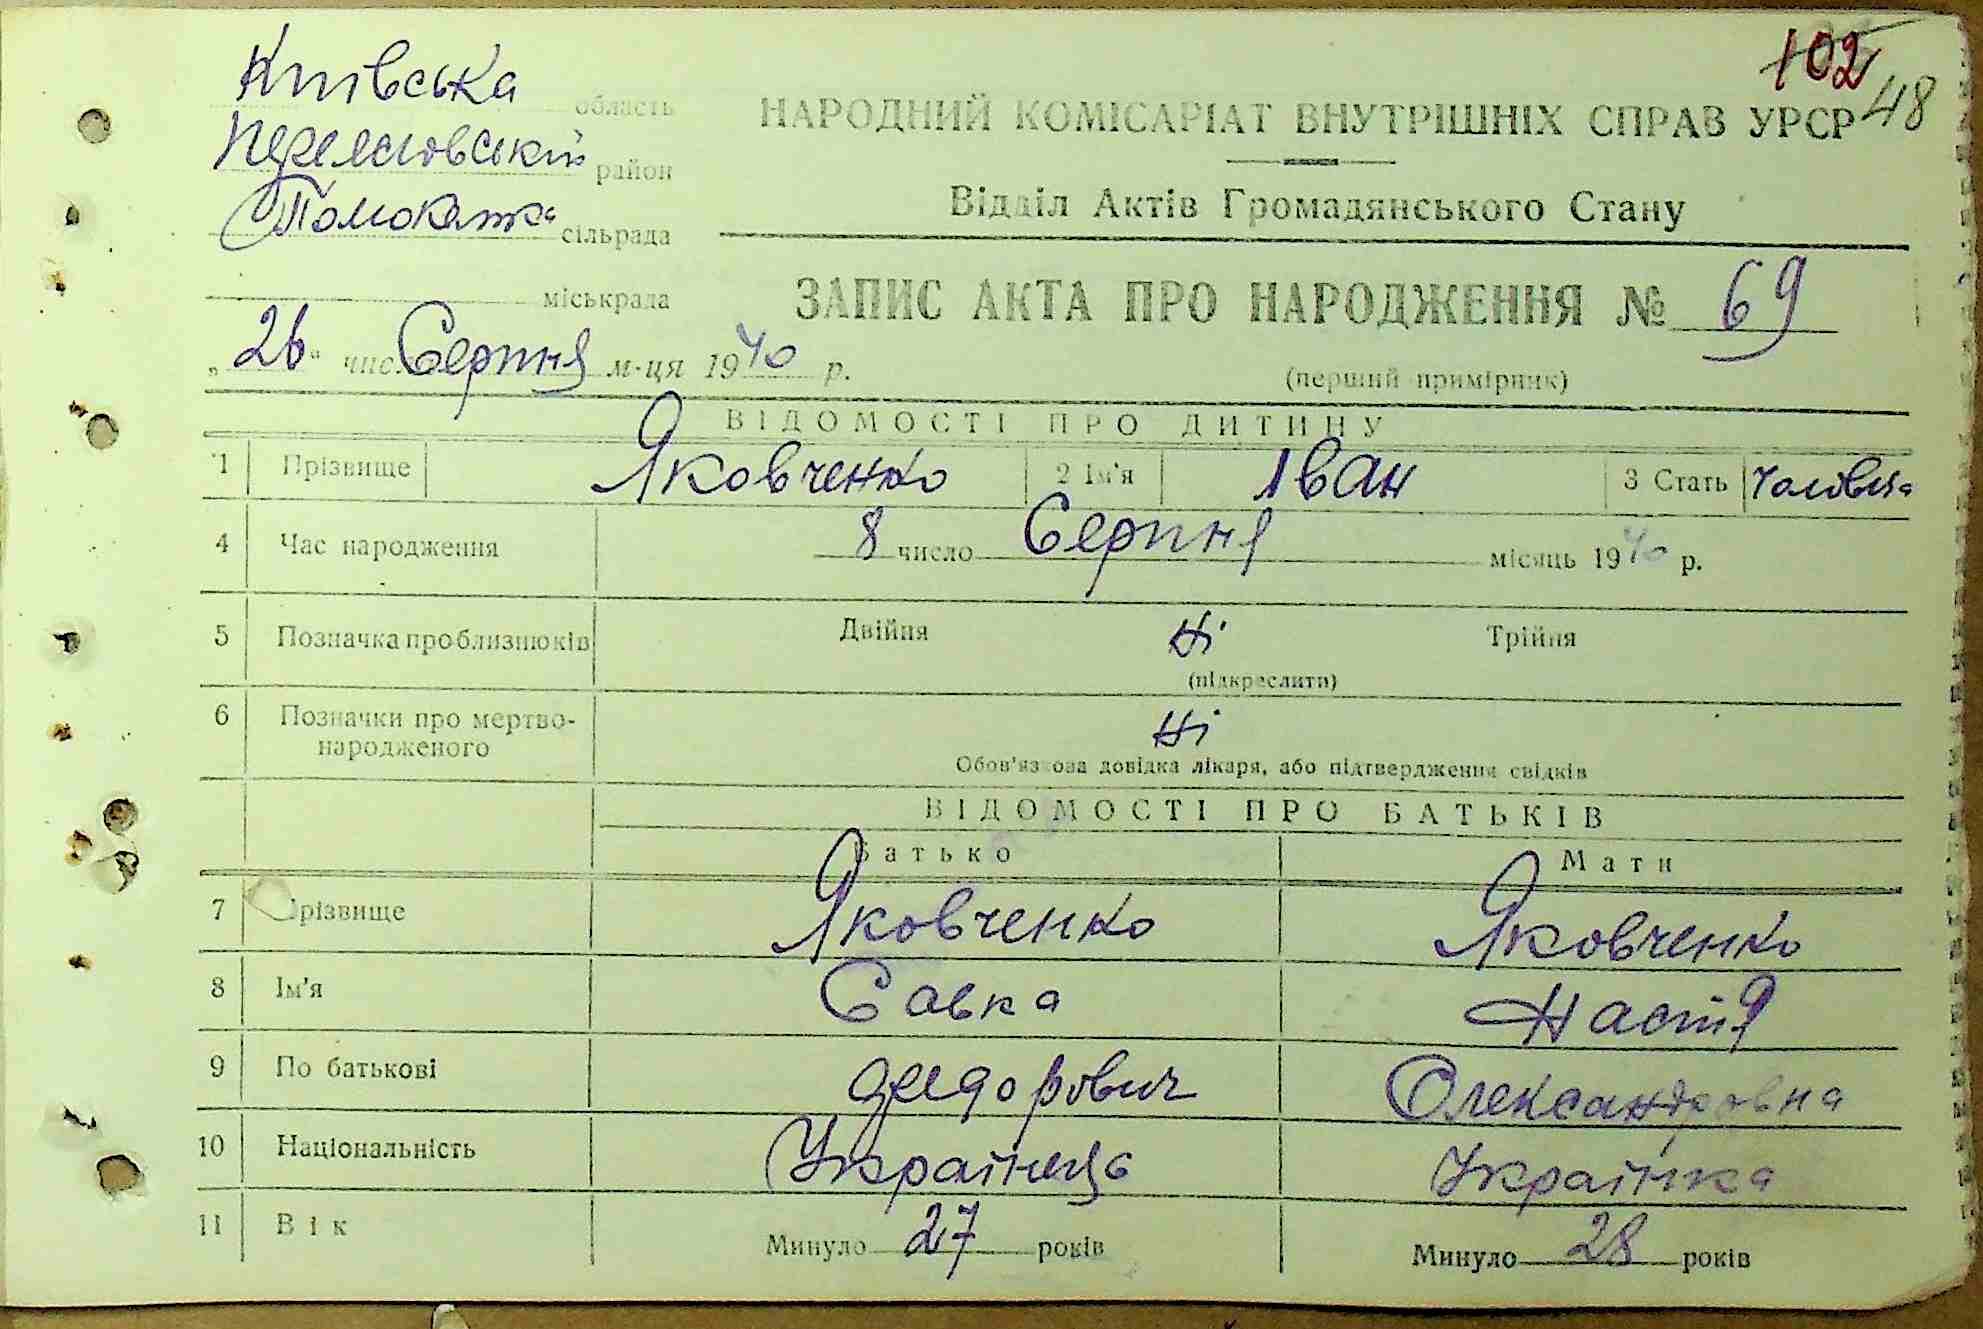 102
48
Київська область
НАРОДНИЙ КОМІСАРІАТ ВНУТРІШНІХ СПРАВ УРСР
район
Відділ Актів Громадянського Стану
сільрада
міськрада
ЗАПИС АКТА ПРО НАРОДЖЕННЯ № 69
„26" чис. Серпня м-ця 1940 р.
(перший примірник)
ВІДОМОСТІ ПРО ДИТИНУ
1 Прізвище Яковченко 2 Ім'я Іван 3 Стать
4 Час народження 8 число Серпня місяць 1940 р.
5 Позначка про близнюків Двійня Ні Трійня
(підкреслити)
6 Позначки про мертво-
народженого Ні
Обов'язкова довідка лікаря, або підтвердження свідків
ВІДОМОСТІ ПРО БАТЬКІВ
Батько Мати
7 Прізвище Яковченко Яковченко
8 Ім'я Савка Настя
9 По батькові Федорович Олександровна
10 Національність Українець Українка
11 Вік Минуло 27 років Минуло 28 років